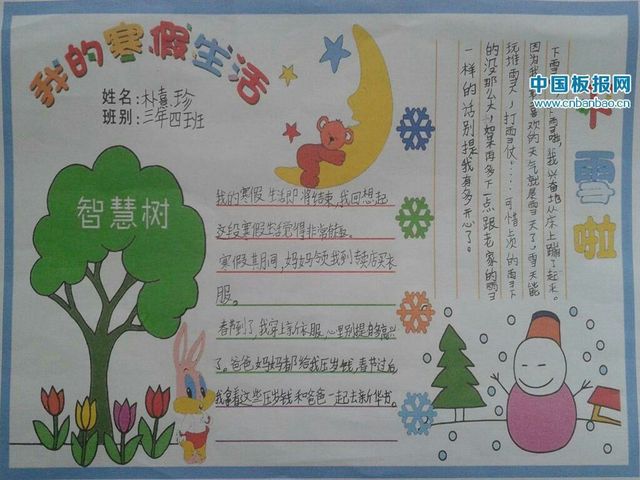 我的寒假生活
姓名：朴喜珍
班别：三年四班
智慧树
我的寒假生活即将结束，我回想起
这段寒假生活觉得非常好玩。
寒假其间，妈妈今天我到专卖店买衣
服。
春节到了，我穿上新衣服，心里别提多高兴
了。爸爸妈妈都给我压岁钱，春节过后
我拿着这些压岁钱和爸爸一起去新华书。
下雪啦
下雪，下雪啦，我兴奋地从床上蹦了起来。
因为我喜欢的天气就是雪天了，雪天能
玩堆雪人，打雪仗……可惜上次的雪下
的没那么大，如果再多下一点跟老家的雪
一样的话别提我有多开心了。
中国板报网
www.cnbanbao.cn